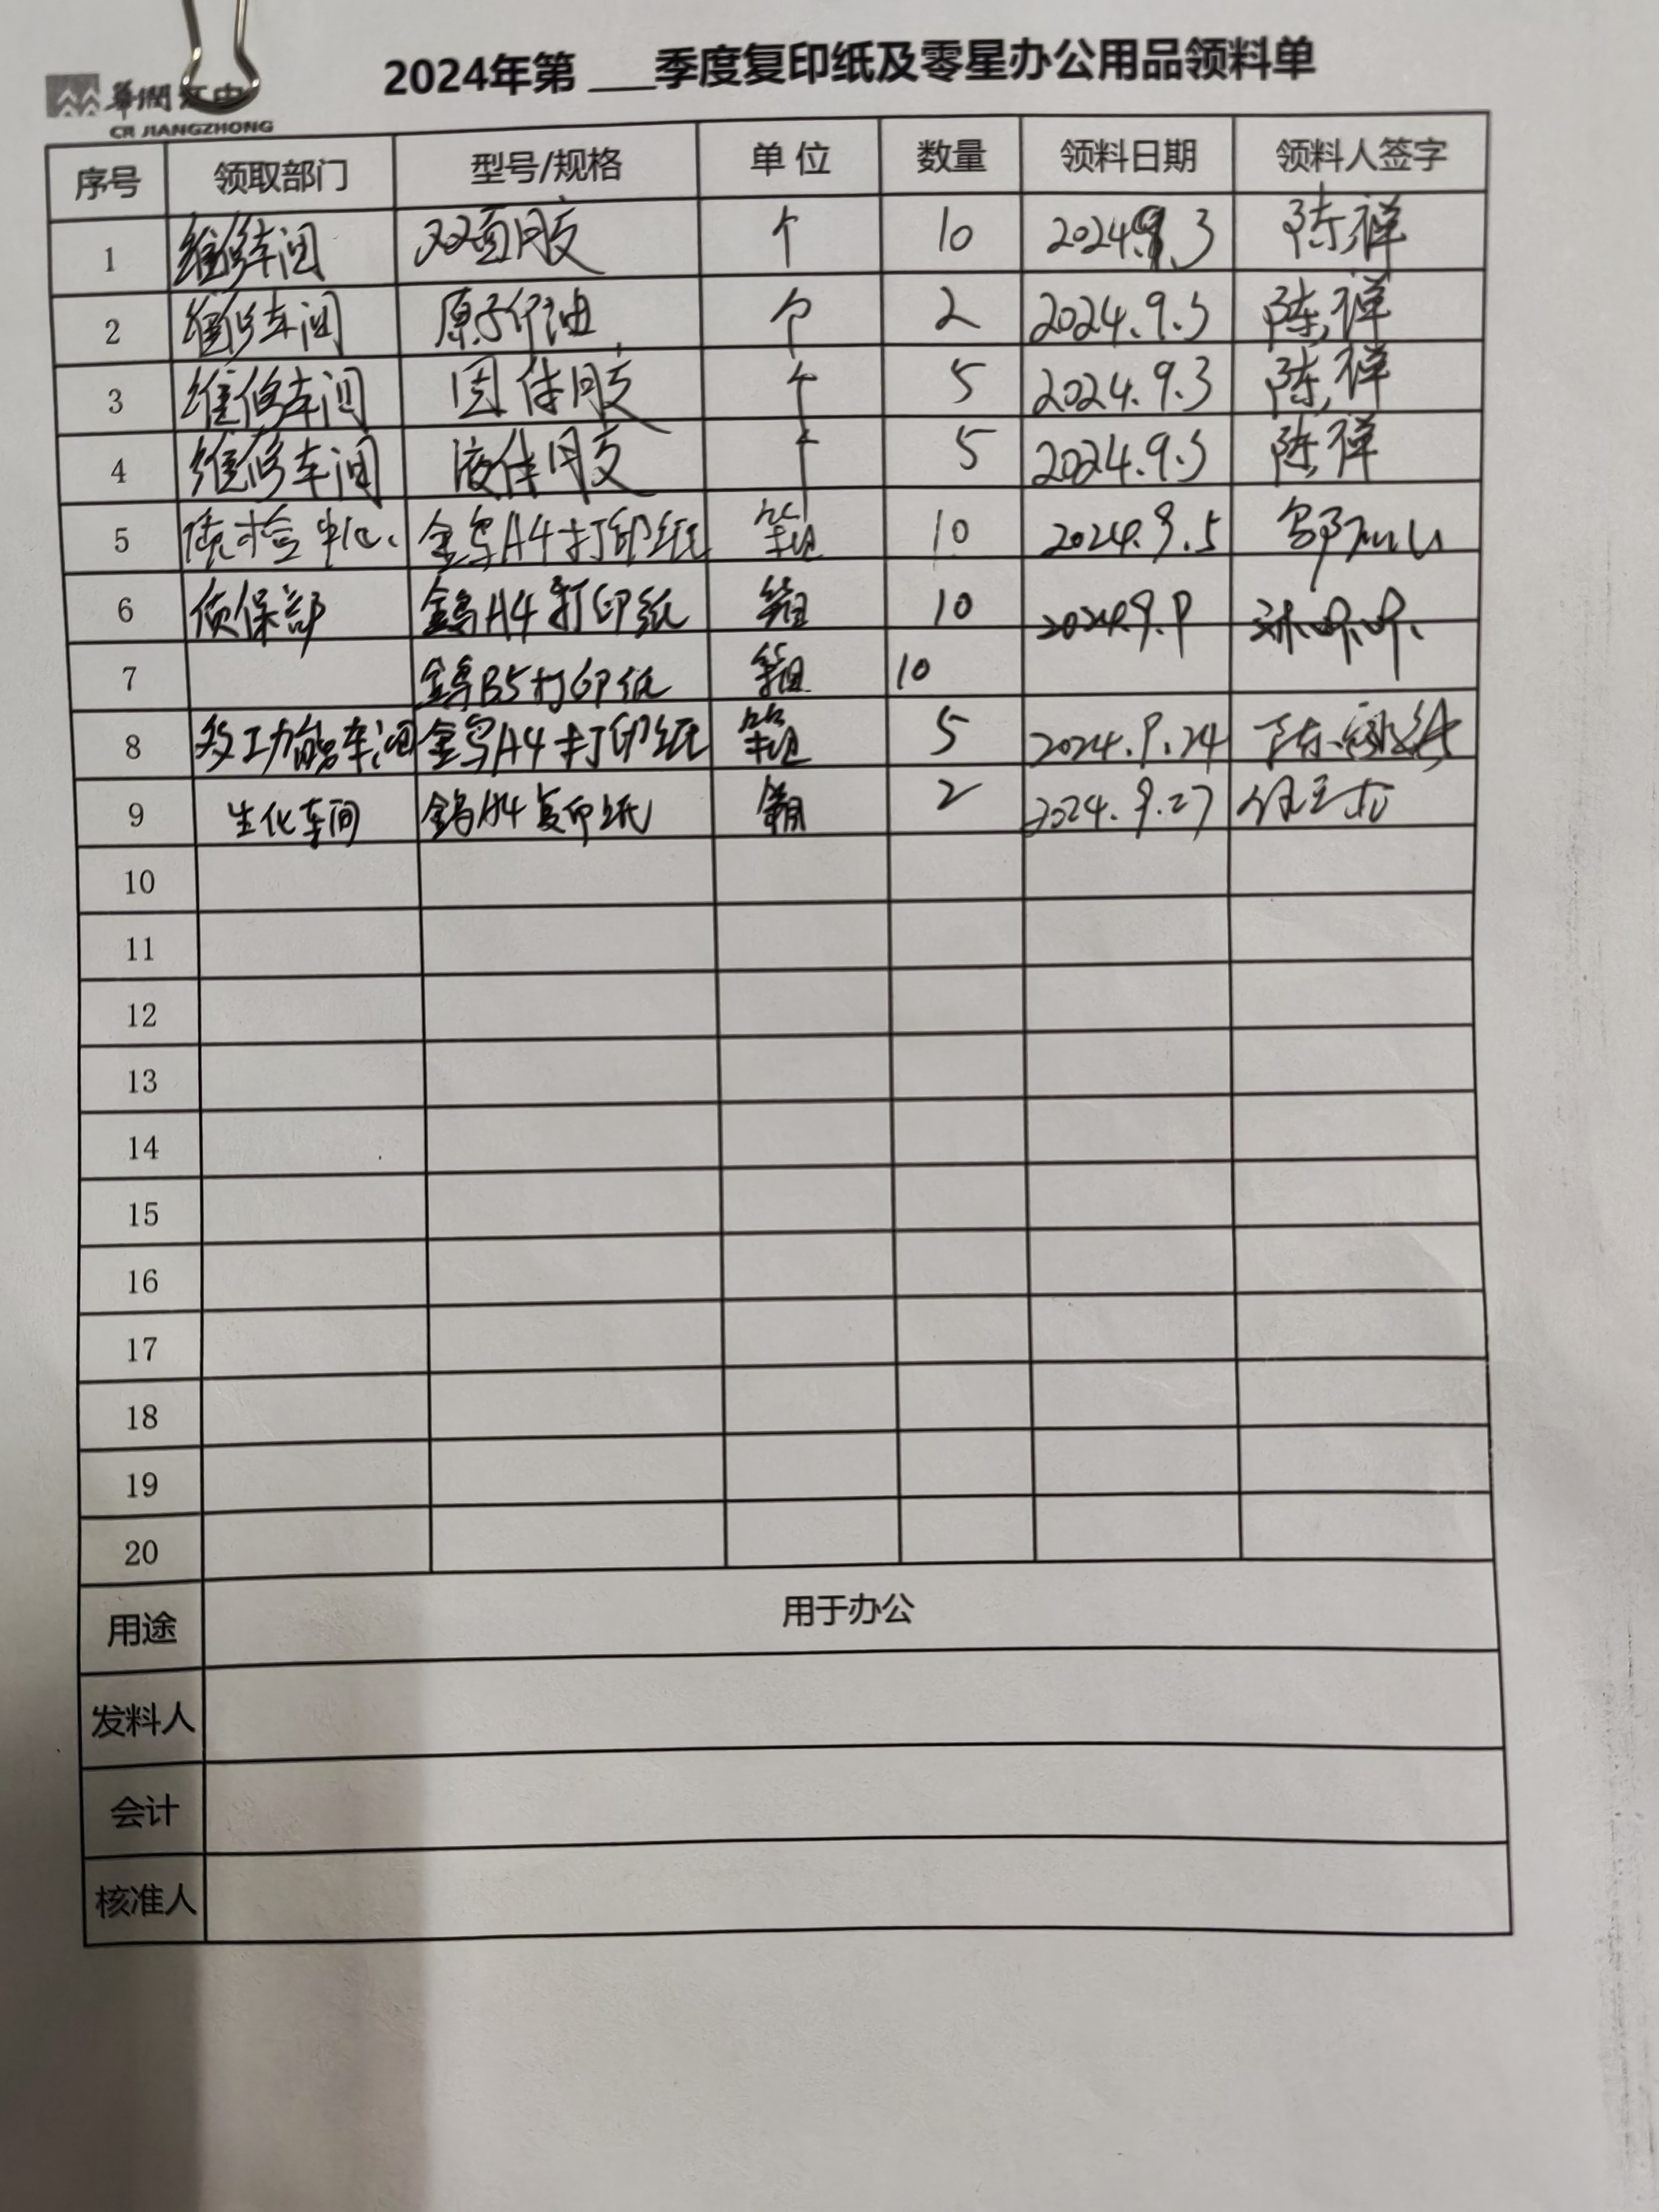 華潤江中
CR JIANGZHONG
2024年第___季度复印纸及零星办公用品领料单
序号 领取部门 型号/规格 单位 数量 领料日期 领料人签字
1 维修车间 双面胶 个 10 2024.9.3 陈祥
2 维修车间 原子印油 个 2 2024.9.3 陈祥
3 维修车间 固体胶 个 5 2024.9.3 陈祥
4 维修车间 液体胶 个 5 2024.9.3 陈祥
5 质检中心 金鸟A4打印纸 箱 10 2024.9.5
6 质保部 金鸟A4打印纸 箱 10 2024.9.9
7 金鸟B5打印纸 箱 10
8 多功能车间 金鸟A4打印纸 箱 5 2024.9.24
9 生化车间 金鸟A4复印纸 箱 2 2024.9.27
10
11
12
13
14
15
16
17
18
19
20
用途 用于办公
发料人
会计
核准人